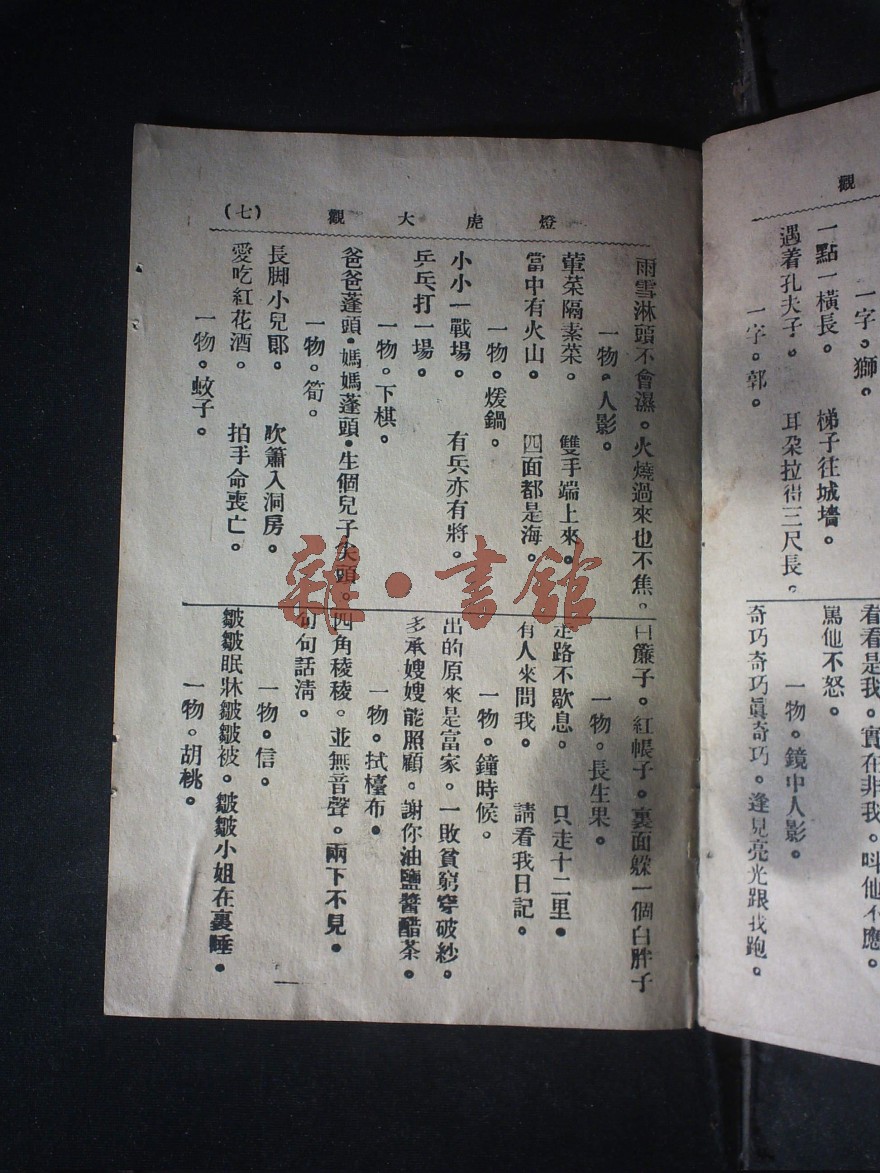 觀
一字。獅。
一點一橫長。　梯子往城墻。
遇着孔夫子。　耳朶拉得三尺長。
一字。郭。
看看是我。實在非我。呌他不應。
罵他不怒。
一物。鏡中人影。
奇巧奇巧眞奇巧。逢見亮光跟我跑。
燈虎大觀
(七)
雨雪淋頭不會濕。火燒過來也不焦。
一物。人影。
葷菜隔素菜。　雙手端上來。
當中有火山。　四面都是海。
一物。煖鍋。
小小一戰場。　有兵亦有將。
乒乓打一場。
一物。下棋。
爸爸蓬頭。媽媽蓬頭。生個兒子尖頭。
一物。筍。
長脚小兒郞。　吹簫入洞房。
愛吃紅花酒。　拍手命喪亡。
一物。蚊子。
簾子。紅帳子。裏面躱一個白胖子
一物。長生果。
走路不歇息。　只走十二里。
有人來問我。　請看我日記。
一物。鐘時候。
出的原來是富家。一敗貧窮穿破紗。
多承嫂嫂能照顧。謝你油鹽醬醋茶。
一物。拭檯布。
四角稜稜。並無音聲。兩下不見。
句句話淸。
一物。信。
皺皺眠牀皺皺被。皺皺小姐在裏睡。
一物。胡桃。
雜·書館